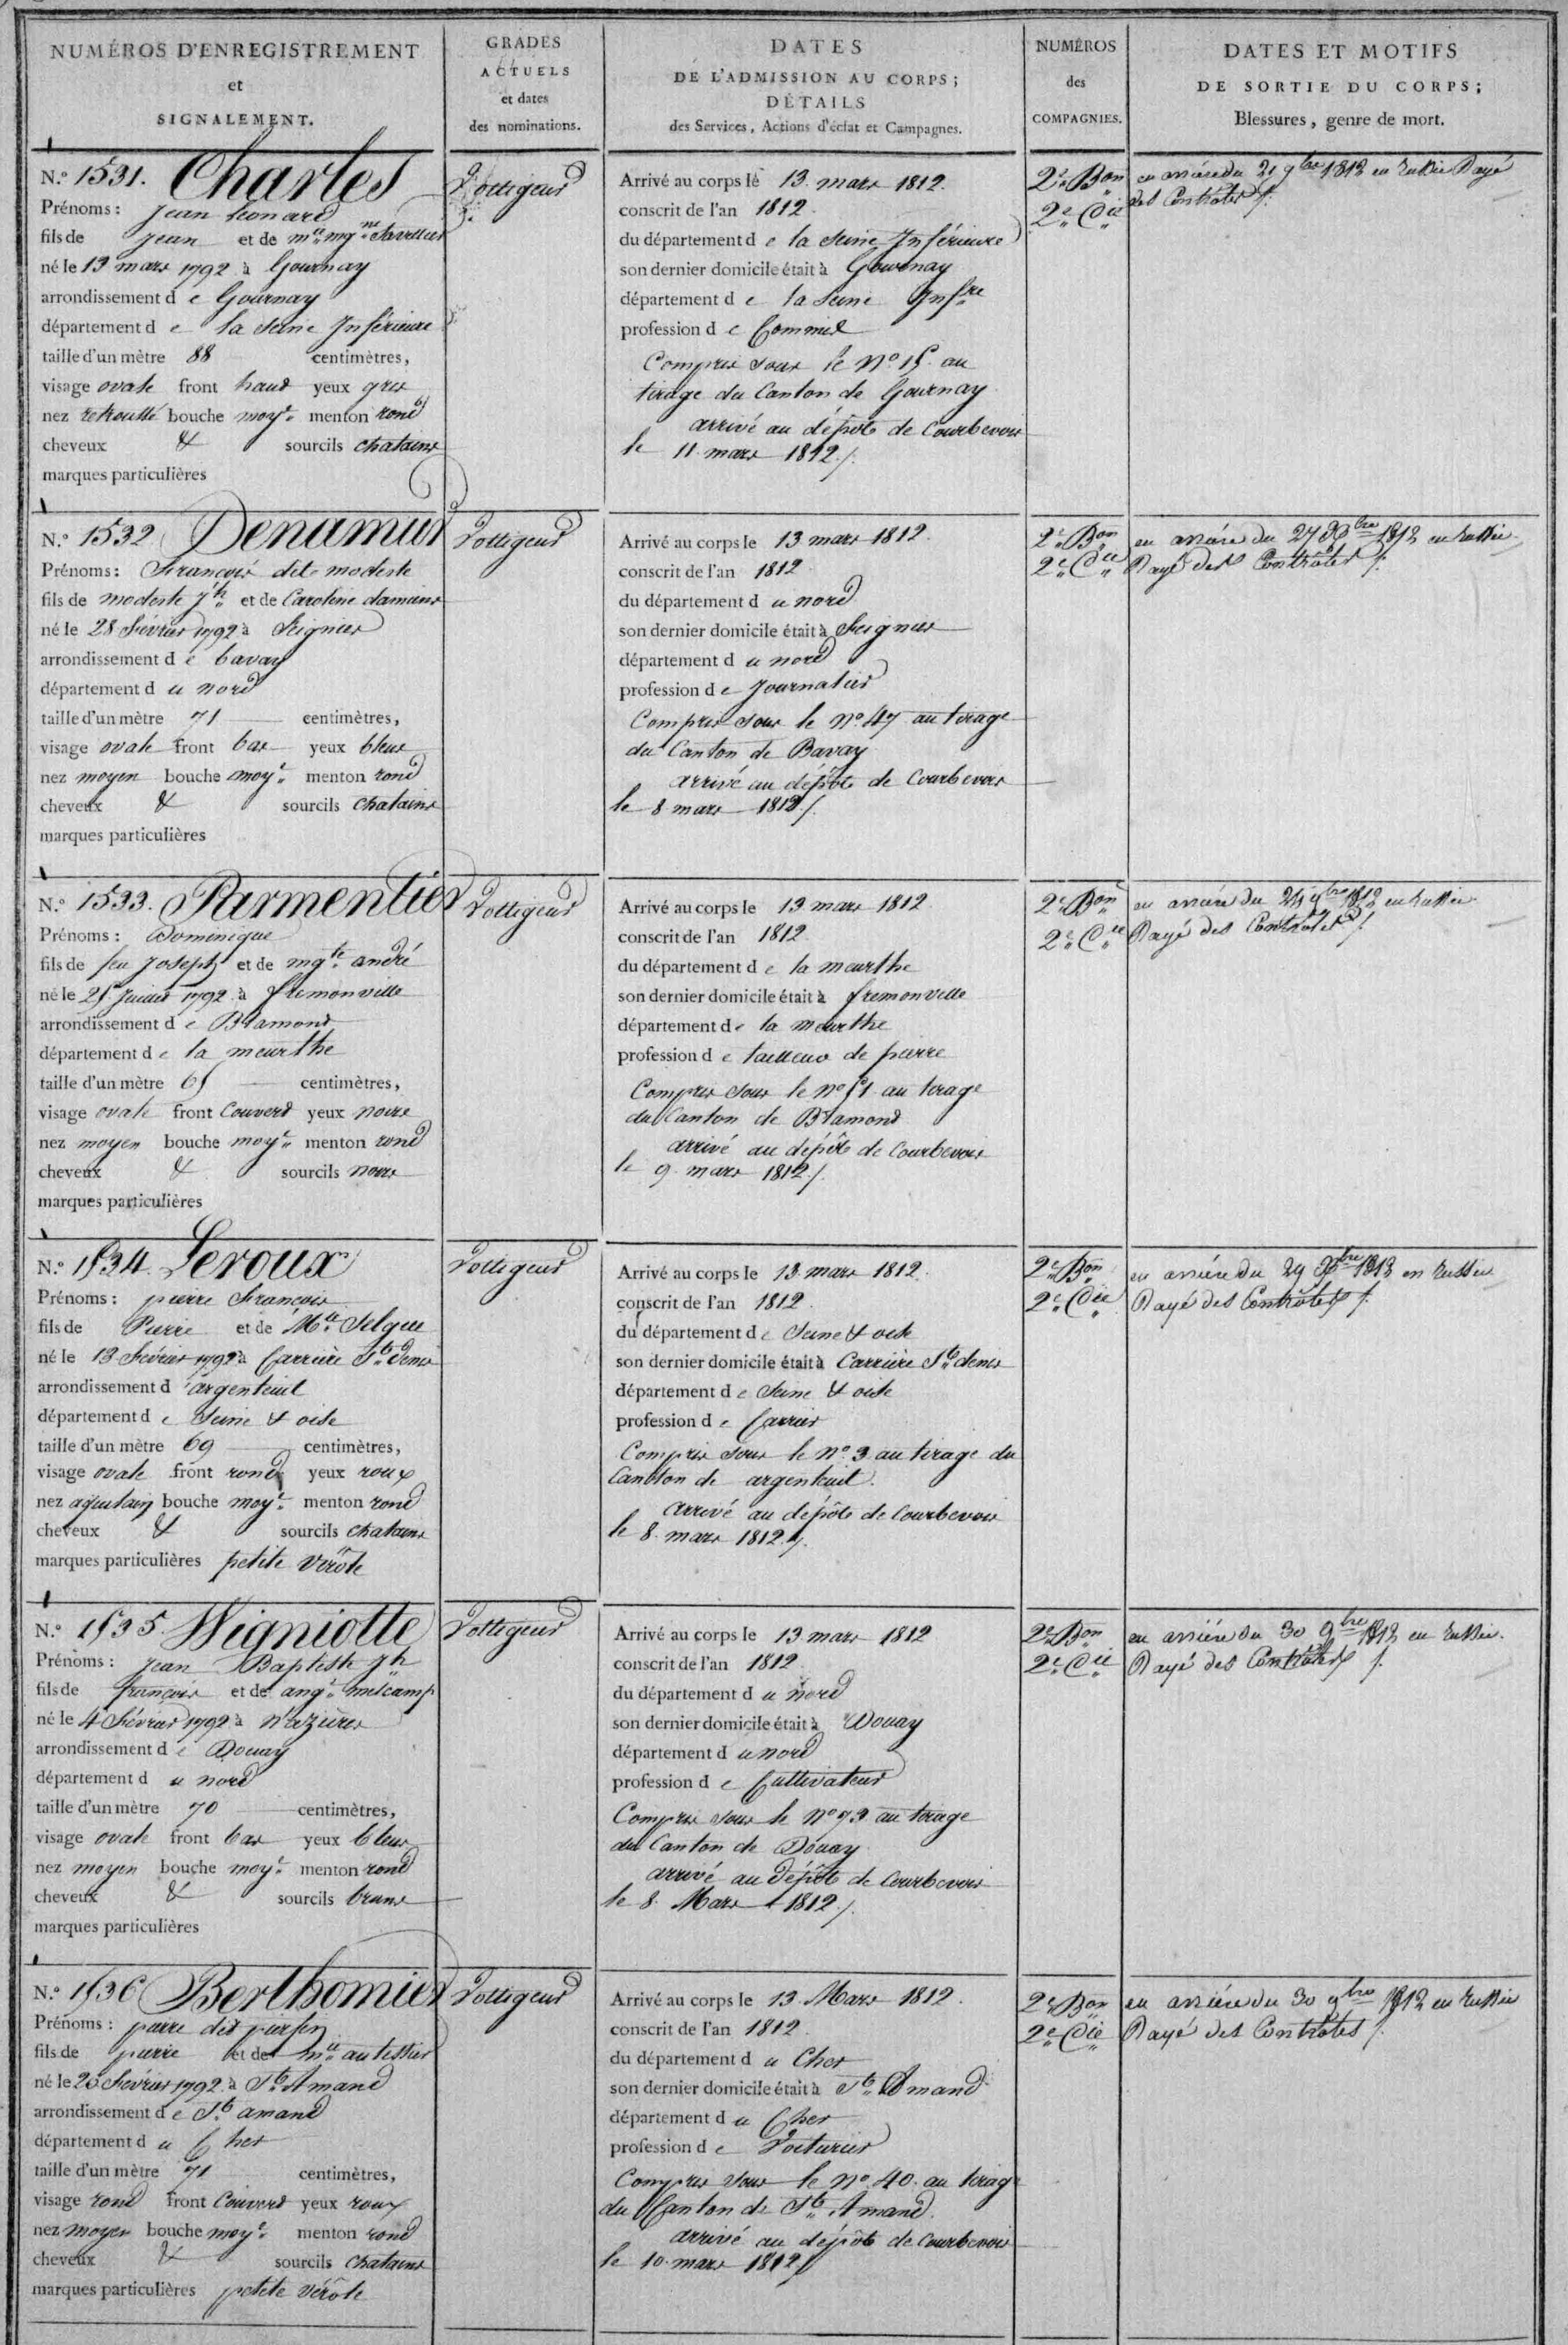 NUMÉROS D'ENREGISTREMENT
et
SIGNALEMENT.
GRADES
ACTUELS
et dates
des nominations.
DATES
DE L'ADMISSION AU CORPS;
DÉTAILS
des Services, Actions d'éclat et Campagnes.
NUMÉROS
des
COMPAGNIES.
DATES ET MOTIFS
DE SORTIE DU CORPS;
Blessures, genre de mort.
N.º 1531. Charles
Prénoms: Jean Leonard
fils de Jean et de
né le 13 mars 1792 à Gournay
arrondissement de Gournay
département de la Seine Inférieure
taille d'un mètre 88 centimètres,
visage ovale front haud yeux gris
nez retroussé bouche moy.e menton rond
cheveux & sourcils chatains
marques particulières
Voltigeur
Arrivé au corps le 13 mars 1812.
conscrit de l'an 1812.
du département de la Seine Inférieure
son dernier domicile était à Gournay
département de la Seine Infre
profession de Commis
Compris sous le Nº 15 au
tirage du Canton de Gournay
arrivé au dépôt de Courbevoie
le 11 mars 1812./.
2.e Bon
2.e Cie
en arrière du 29 9bre 1812 en Russie Rayé
des Contrôles ./.
N.º 1532 Denamur
Prénoms: François dit modeste
fils de modeste Jh et de Caroline damiens
né le 28 Février 1792 à Feignies
arrondissement de bavay
département du nord
taille d'un mètre 71 centimètres,
visage ovale front bas yeux bleus
nez moyen bouche moy.e menton rond
cheveux & sourcils chatains
marques particulières
Voltigeur
Arrivé au corps le 13 mars 1812.
conscrit de l'an 1812
du département du nord
son dernier domicile était à Feignies
département du nord
profession de Journalier
Compris sous le nº 47 au tirage
du Canton de Bavay
arrivé au dépôt de Courbevoie
le 8 mars 1812./.
2.e Bon
2.e Cie
en arrière du 27 Xbre 1812 en Russie
Rayé des Contrôles ./.
N.º 1533. Parmentier
Prénoms: Dominique
fils de feu Joseph et de mgte andré
né le 25 Juillet 1792 à fremonville
arrondissement de Blamont
département de la meurthe
taille d'un mètre 65 centimètres,
visage ovale front Couvert yeux noirs
nez moyen bouche moy.e menton rond
cheveux & sourcils noirs
marques particulières
Voltigeur
Arrivé au corps le 13 mars 1812.
conscrit de l'an 1812
du département de la meurthe
son dernier domicile était à fremonville
département de la meurthe
profession de tailleur de pierre
Compris sous le nº 51 au tirage
du Canton de Blamond
arrivé au dépôt de Courbevoie
le 9 mars 1812./.
2.e Bon
2.e Cie
en arrière du 9bre 1812 en Russie
Rayé des Contrôles ./.
N.º 1534. Leroux
Prénoms: pierre François
fils de Pierre et de
né le 13 Février 1792 à Carrière St Denis
arrondissement d'argenteuil
département de Seine & oise
taille d'un mètre 69 centimètres,
visage ovale front rond yeux roux
nez aquilain bouche moy.e menton rond
cheveux & sourcils chatains
marques particulières petite Vérole
Voltigeur
Arrivé au corps le 13 mars 1812.
conscrit de l'an 1812.
du département de Seine & oise
son dernier domicile était à Carrière St denis
département de Seine & oise
profession de Carrier
Compris sous le nº 3 au tirage du
Canton de argenteuil.
arrivé au dépôt de Courbevoie
le 8 mars 1812./.
2.e Bon
2.e Cie
en arrière du 29 Xbre 1812 en Russie
Rayé des Contrôles ./.
N.º 1535. Wigniolle
Prénoms: Jean Baptiste Jh
fils de françois et de ang.e melcamp
né le 4 Février 1792 à
arrondissement de Douay
département du nord
taille d'un mètre 70 centimètres,
visage ovale front bas yeux bleus
nez moyen bouche moy.e menton rond
cheveux & sourcils bruns
marques particulières
Voltigeur
Arrivé au corps le 13 mars 1812
conscrit de l'an 1812
du département du nord
son dernier domicile était à Douay
département du nord
profession de Cultivateur
Compris sous le nº 73 au tirage
du Canton de Douay
arrivé au dépôt de Courbevoie
le 8 Mars 1812./.
2.e Bon
2.e Cie
en arrière du 30 9bre 1812 en Russie.
Rayé des Contrôles ./.
N.º 1536 Berthomier
Prénoms: pierre dit
fils de pierre et de mie autissier
né le Fevrier 1792 à St Amand
arrondissement de St amand
département du Cher
taille d'un mètre 71 centimètres,
visage rond front Couvert yeux roux
nez moyen bouche moy.e menton rond
cheveux & sourcils chatains
marques particulières petite vérole
Voltigeur
Arrivé au corps le 13 Mars 1812.
conscrit de l'an 1812.
du département du Cher
son dernier domicile était à St Amand
département du Cher
profession de Voiturier
Compris sous le nº 40 au tirage
du Canton de St Amand.
arrivé au dépôt de Courbevoie
le 10 mars 1812./.
2.e Bon
2.e Cie
en arrière du 30 9bre 1812 en Russie
Rayé des Contrôles ./.